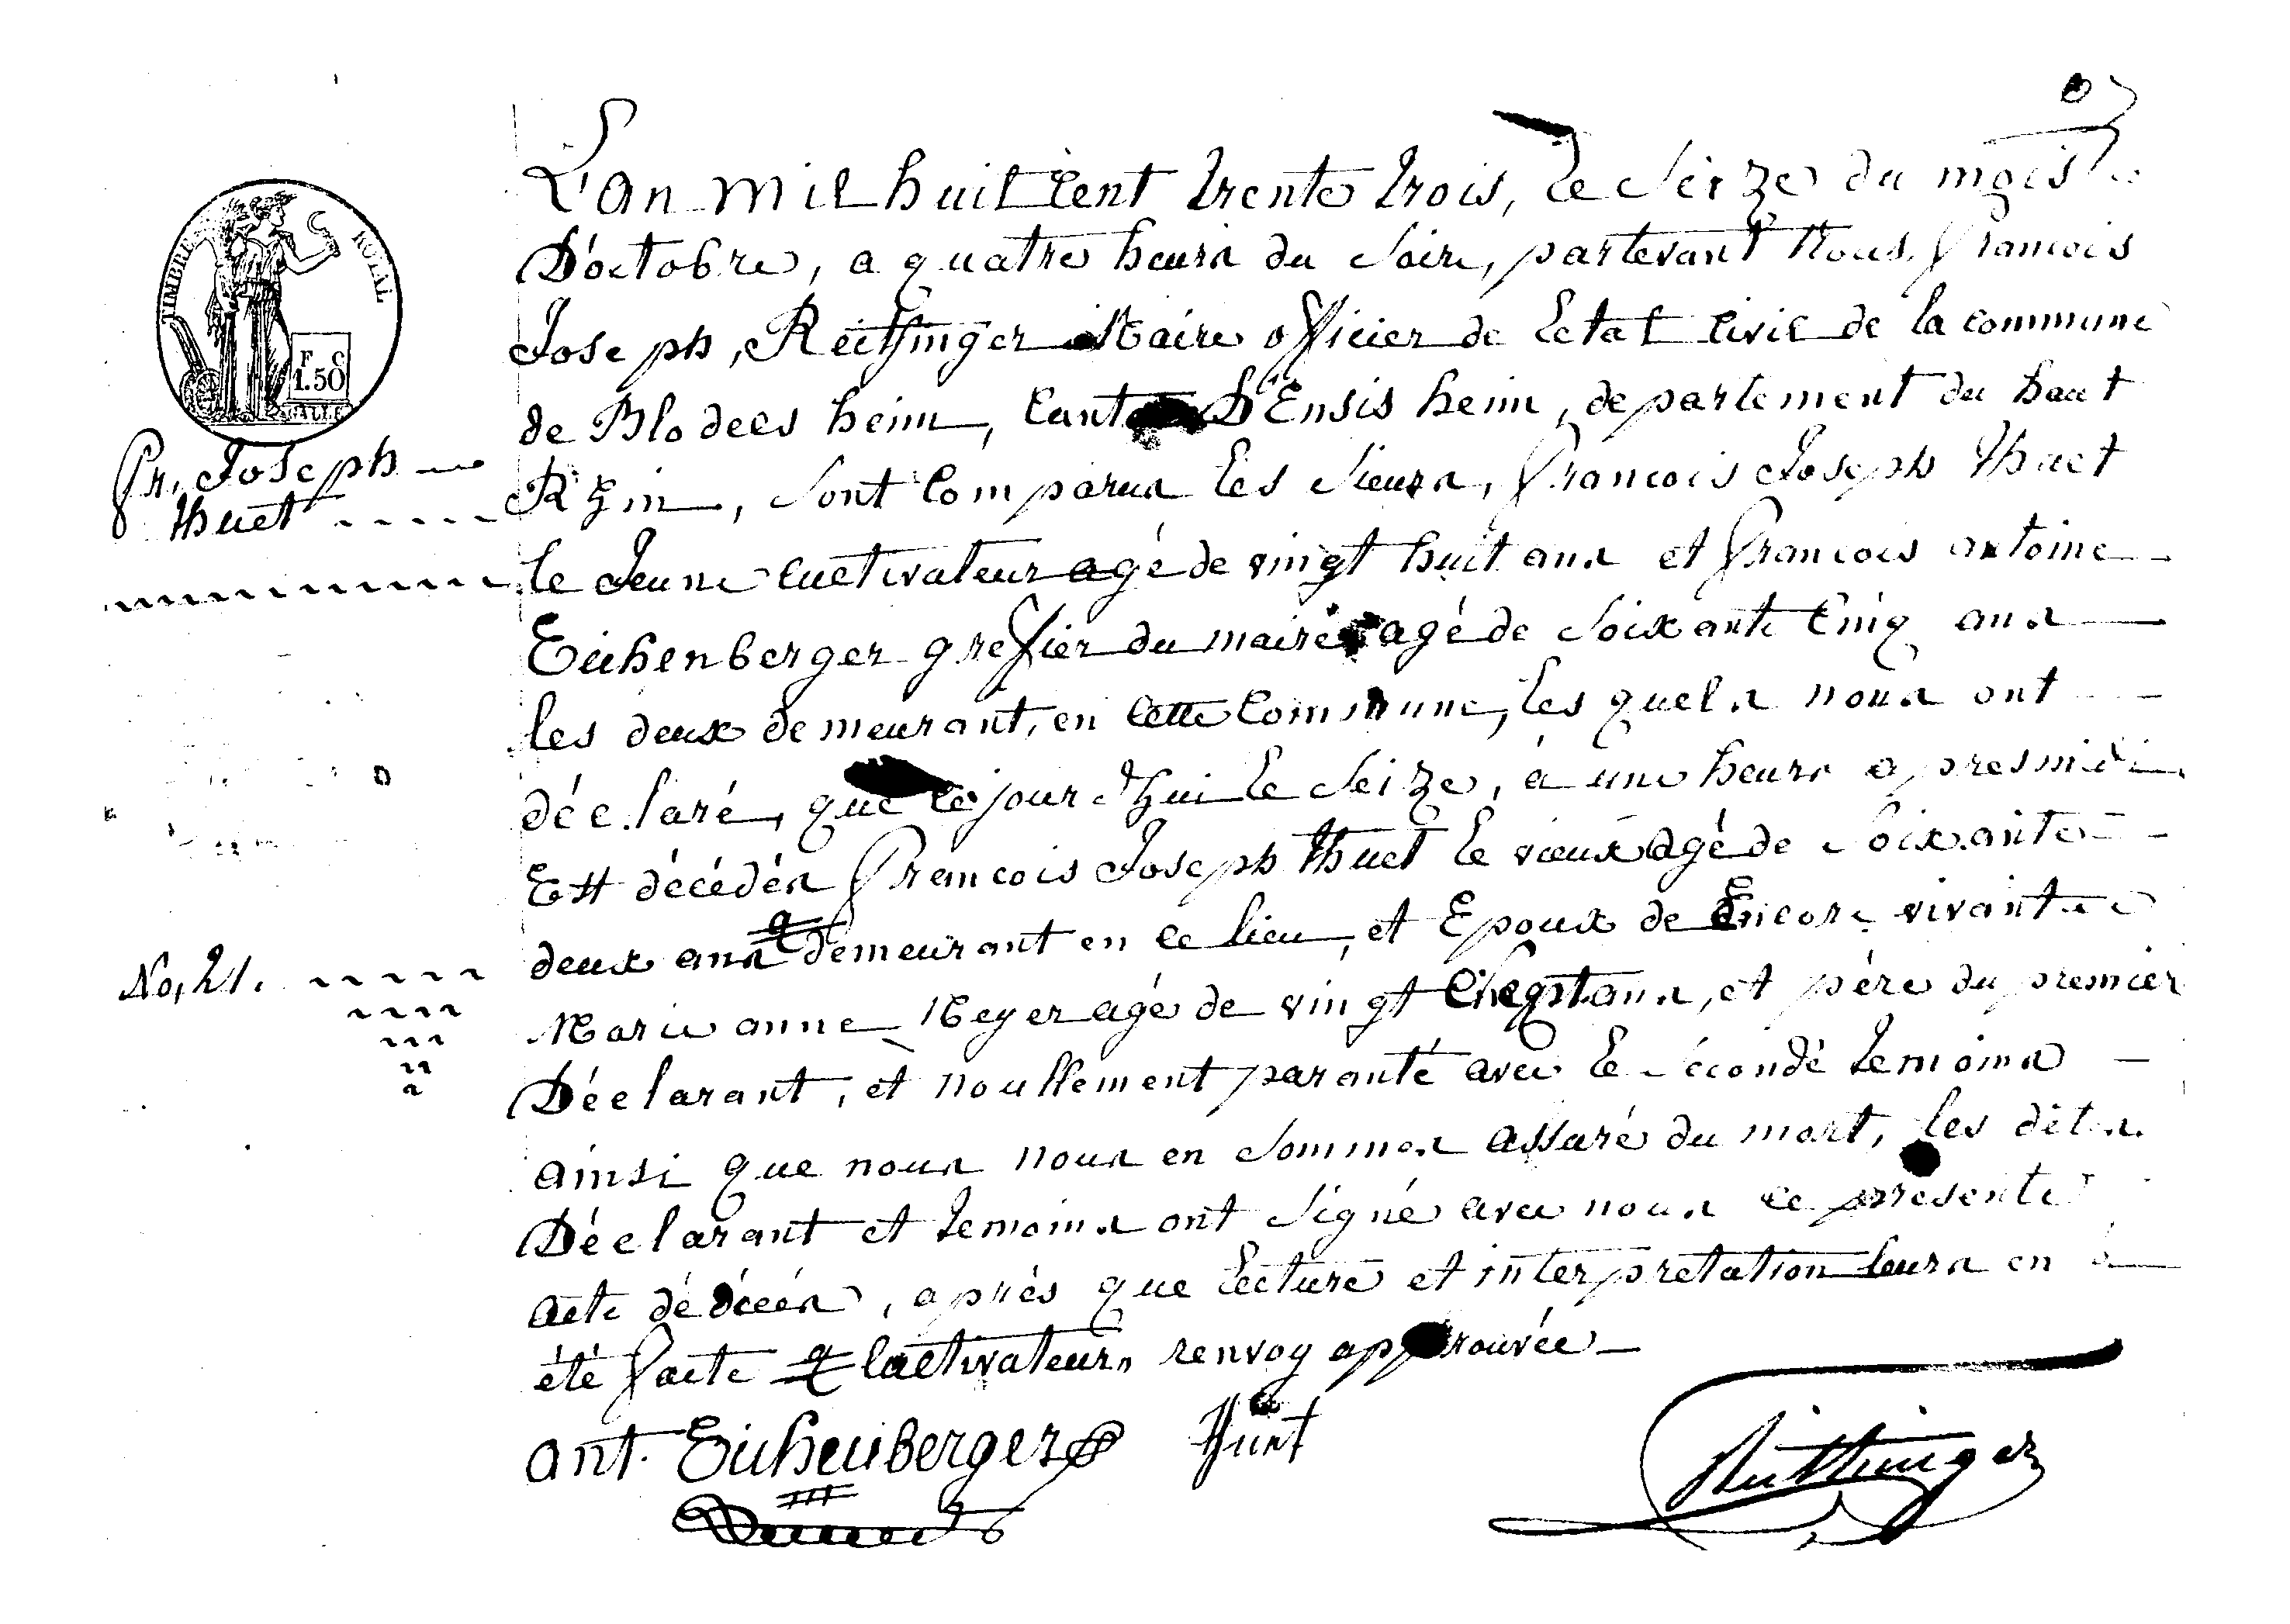 L'an mil huit cent trente trois, le Seize du mois
D'octobre, a quatre heurs du soire, partevant Nous, francois
Joseph, Reithinger Maire officier de letat civil de la commune
de Blodelsheim, Canton D'Ensisheim, departement du haut
Rhin, sont comparus les sieurs, francois Joseph Thuet
le Jeune cultivateur agé de vingt huit ans et francois antoine
Eichenberger grefier du maire agé de soixante cinq ans
les deux demeurant, en cette commune, les quels nous ont
déclaré, que ce jourd'hui le seize, à une heure apresmidi
Est décédés francois Joseph Thuet le vieux agé de soixante
deux ans demeurant en ce lieu, et Epoux de Encore vivante
Marie anne Meyer agé de vingt ans, et père du premier
Déclarant, et noullement paranté avec le sécondé temoins
ainsi que nous nous en sommes assuré du mort, les dits
Déclarant et temoins ont signé avec nous ce presente
acte dé décés, après que lecture et interpretation leurs en a
été faite cultivateur, renvoy approuvée
ant. Eichenberger Thuet
Reithinger
fr. Joseph
Thuet
No, 21.
TIMBRE ROYAL
F C
1.50